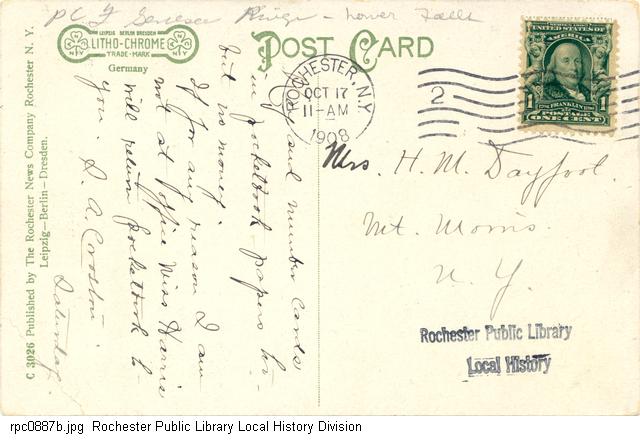 PC F Genesee River - Lower Falls
LEIPZIG BERLIN DRESDEN
LITHO-CHROME
TRADE-MARK
N.Y.
N.Y.
Germany
POST CARD
ROCHESTER, N.Y.
OCT 17
11-AM
1908
2
UNITED STATES OF
AMERICA
FRANKLIN
POSTAGE
1 1
ONE CENT
C 3026 Published by The Rochester News Company Rochester N. Y.
Leipzig—Berlin—Dresden.
and number cards
in pocketbook - papers
but no money.
If for any reason I am
not at office Miss Harris
will return pocketbook to
you. S. A.
Saturday.
Mrs. H. M. Dayfoot.
Mt. Morris.
N. Y.
Rochester Public Library
Local History
rpc0887b.jpg Rochester Public Library Local History Division